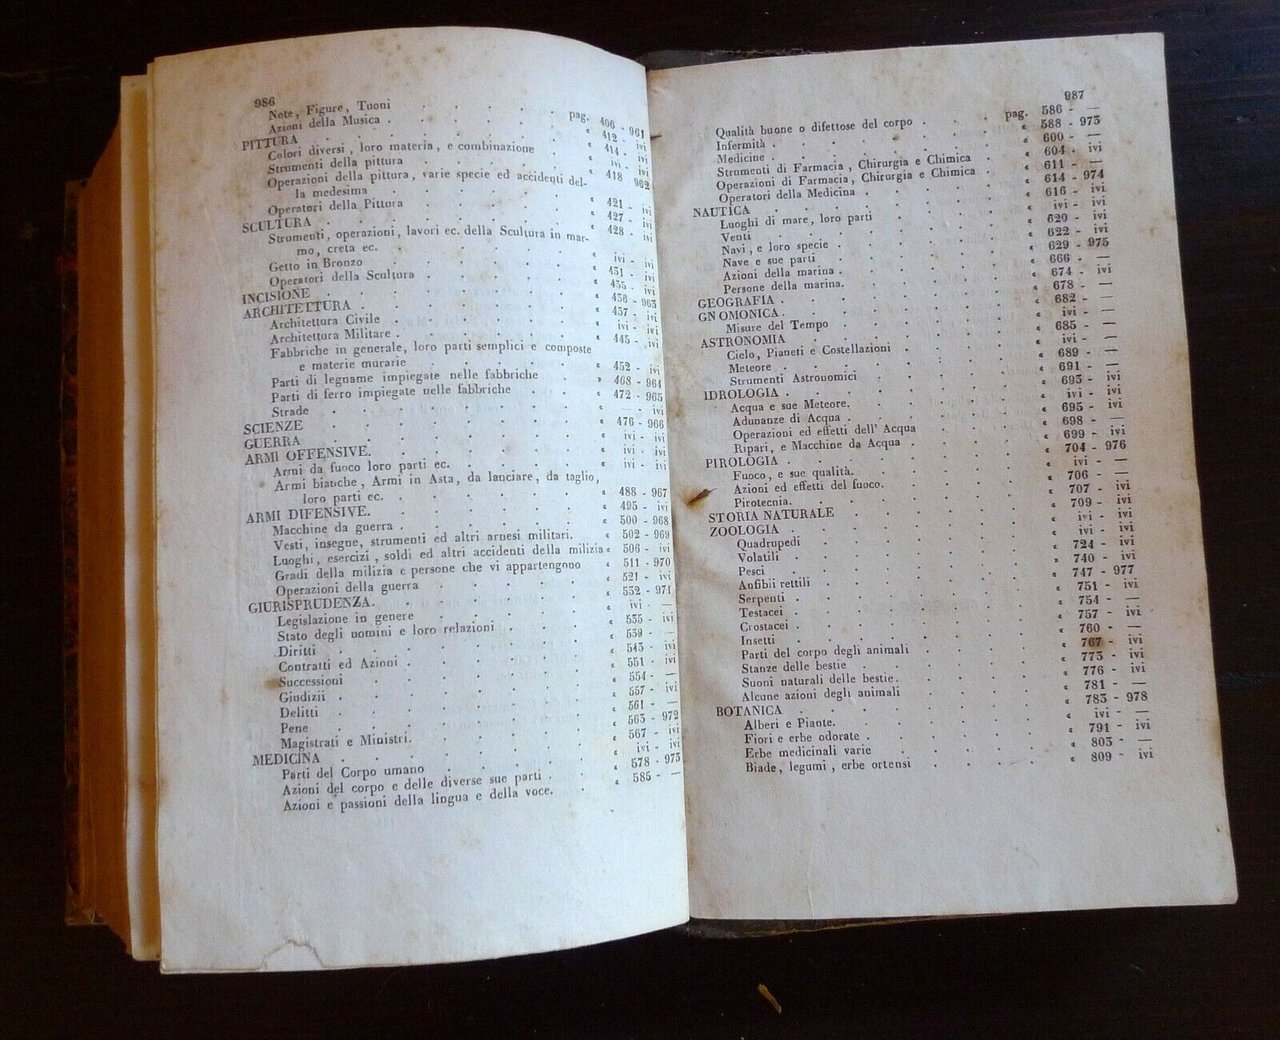 986
Note, Figure, Tuoni . . . . . pag. 406 - 961
Azioni della Musica . . . . . « 412 - ivi
PITTURA . . . . . « 414 - ivi
Colori diversi, loro materia, e combinazione . « ivi - ivi
Strumenti della pittura . . . . « 418 962
Operazioni della pittura, varie specie ed accidenti del-
la medesima . . . . . « 421 - ivi
Operatori della Pittura . . . . « 427 - ivi
SCULTURA . . . . . « 428 - ivi
Strumenti, operazioni, lavori ec. della Scultura in mar-
mo, creta ec. . . . . . « ivi - ivi
Getto in Bronzo . . . . . « 431 - ivi
Operatori della Scultura . . . . « 435 - ivi
INCISIONE . . . . . « 436 - 963
ARCHITETTURA . . . . . « 437 - ivi
Architettura Civile . . . . . « ivi - ivi
Architettura Militare . . . . . « 445 - ivi
Fabbriche in generale, loro parti semplici e composte
e materie murarie . . . . . « 452 - ivi
Parti di legname impiegate nelle fabbriche . . » 468 - 964
Parti di ferro impiegate nelle fabbriche . . « 472 - 965
Strade . . . . . « — - ivi
SCIENZE . . . . . « 476 - 966
GUERRA . . . . . « ivi - ivi
ARMI OFFENSIVE. . . . . . « ivi - ivi
Armi da fuoco loro parti ec. . . . . « ivi - ivi
Armi bianche, Armi in Asta, da lanciare, da taglio,
loro parti ec. . . . . . « 488 - 967
ARMI DIFENSIVE. . . . . . « 495 - ivi
Macchine da guerra . . . . . « 500 - 968
Vesti, insegne, strumenti ed altri arnesi militari. « 502 - 969
Luoghi, esercizi, soldi ed altri accidenti della milizia « 506 - ivi
Gradi della milizia e persone che vi appartengono « 511 - 970
Operazioni della guerra . . . . « 521 - ivi
GIURISPRUDENZA. . . . . . « 532 - 971
Legislazione in genere . . . . « ivi - —
Stato degli uomini e loro relazioni . . . « 535 - ivi
Diritti . . . . . « 539 - —
Contratti ed Azioni . . . . . « 543 - ivi
Successioni . . . . . « 551 - ivi
Giudizii . . . . . « 554 - —
Delitti . . . . . « 557 - ivi
Pene . . . . . « 561 - —
Magistrati e Ministri. . . . . . « 563 - 972
MEDICINA . . . . . « 567 - ivi
Parti del Corpo umano . . . . « ivi - ivi
Azioni del corpo e delle diverse sue parti . . « 578 - 973
Azioni e passioni della lingua e della voce. . « 585 - —
987
Qualità buone o difettose del corpo . . . pag. 586 - —
Infermità . . . . . « 588 - 973
Medicine . . . . . « 600 - —
Strumenti di Farmacia, Chirurgia e Chimica . « 604 - ivi
Operazioni di Farmacia, Chirurgia e Chimica . « 611 - —
Operatori della Medicina . . . . « 614 - 974
NAUTICA . . . . . « 616 - ivi
Luoghi di mare, loro parti . . . . « ivi - ivi
Venti . . . . . « 620 - ivi
Navi, e loro specie . . . . . « 622 - ivi
Nave e sue parti . . . . . « 629 - 975
Azioni della marina . . . . . « 666 - —
Persone della marina. . . . . . « 674 - ivi
GEOGRAFIA . . . . . « 678 - —
GNOMONICA. . . . . . « 682 - —
Misure del Tempo . . . . . « ivi - —
ASTRONOMIA . . . . . « 685 - —
Cielo, Pianeti e Costellazioni . . . . « ivi - —
Meteore . . . . . « 689 - —
Strumenti Astronomici . . . . « 691 - —
IDROLOGIA . . . . . « 693 - ivi
Acqua e sue Meteore. . . . . . « ivi - ivi
Adunanze di Acqua . . . . . « 695 - ivi
Operazioni ed effetti dell' Acqua . . . « 698 - —
Ripari, e Macchine da Acqua . . . . « 699 - ivi
PIROLOGIA . . . . . « 704 - 976
Fuoco, e sue qualità. . . . . . « ivi - —
Azioni ed effetti del fuoco. . . . . « 706 - —
Pirotecnia. . . . . . « 707 - ivi
STORIA NATURALE . . . . . « 709 - ivi
ZOOLOGIA . . . . . « ivi - ivi
Quadrupedi . . . . . « ivi - ivi
Volatili . . . . . « 724 - ivi
Pesci . . . . . » 740 - ivi
Anfibii rettili . . . . . « 747 - 977
Serpenti . . . . . « 751 - ivi
Testacei . . . . . « 754 - —
Crostacei . . . . . « 757 - ivi
Insetti . . . . . « 760 - —
Parti del corpo degli animali . . . . « 767 - ivi
Stanze delle bestie . . . . . « 773 - ivi
Suoni naturali delle bestie. . . . . « 776 - ivi
Alcune azioni degli animali . . . . « 781 - —
BOTANICA . . . . . « 783 - 978
Alberi e Piante. . . . . . « ivi - —
Fiori e erbe odorate . . . . . « 791 - ivi
Erbe medicinali varie . . . . « 803 - —
Biade, legumi, erbe ortensi . . . . « 809 - ivi